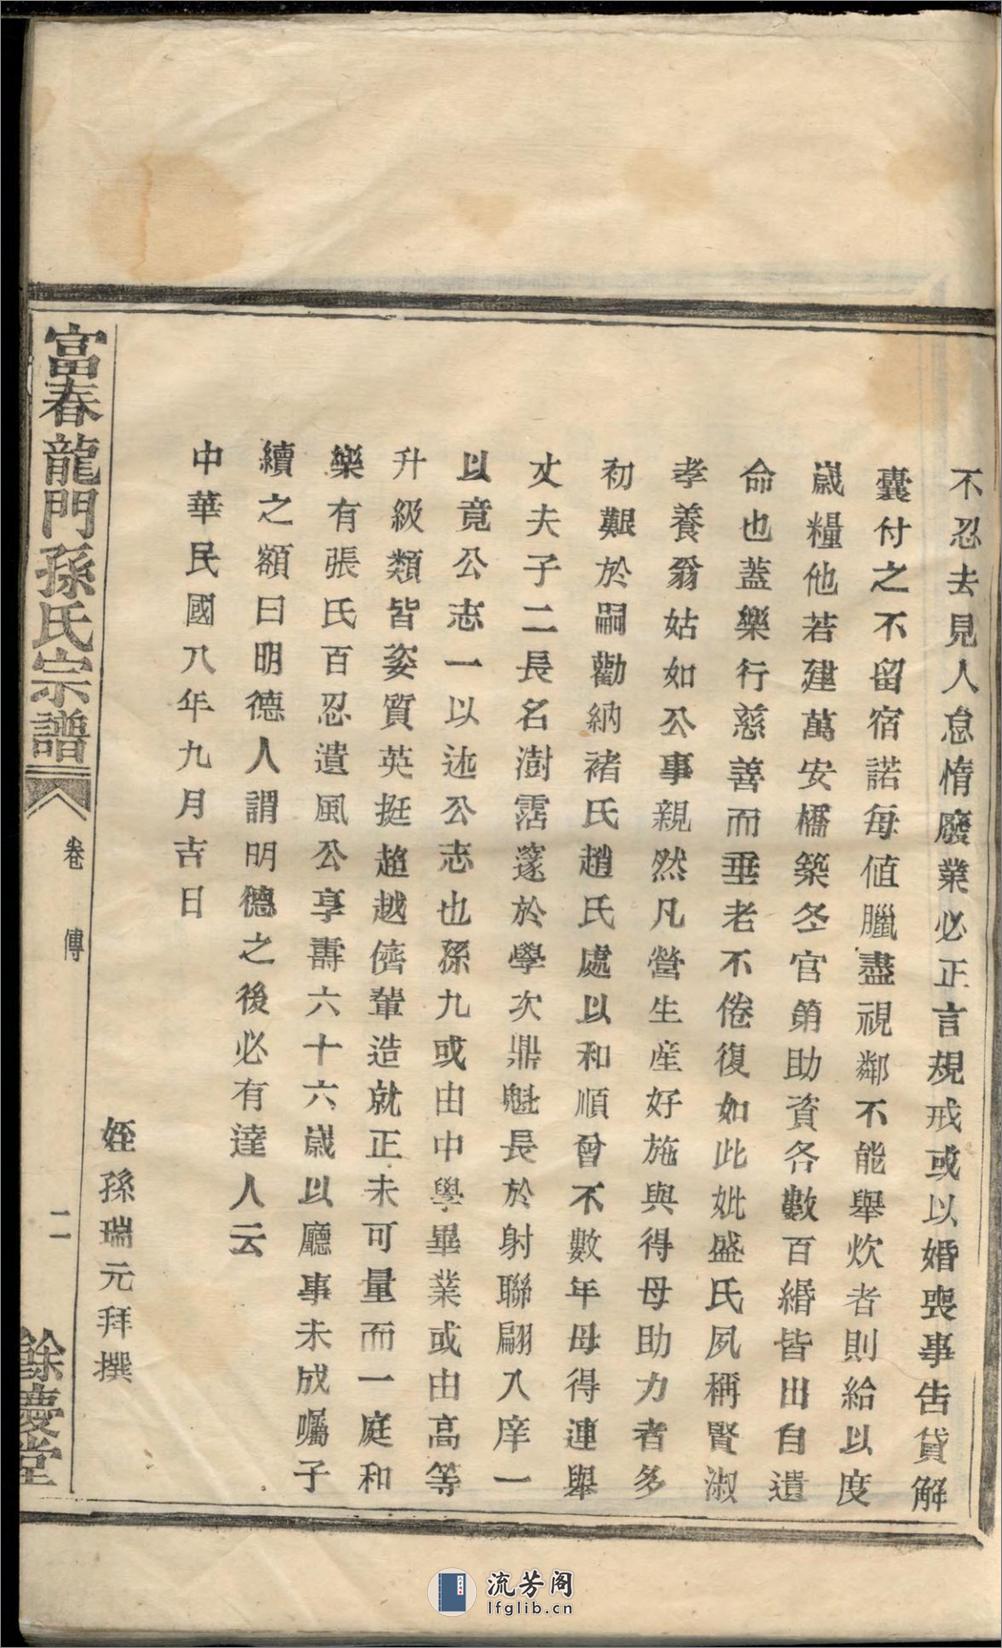 不忍去見人怠惰廢業必正言規戒或以婚喪事告貸解
囊付之不留宿諾每値臘盡視鄰不能舉炊者則給以度
嵗糧他若建萬安橋築冬官第助資各數百緡皆出自遺
命也蓋樂行慈善而垂老不倦復如此妣盛氏夙稱賢淑
孝養翁姑如公事親然凡營生産好施與得母助力者多
初艱於嗣勸納褚氏趙氏處以和順曾不數年母得連舉
丈夫子二長名澍霑邃於學次鼎魁長於射聯翩入庠一
以竟公志一以述公志也孫九或由中學畢業或由高等
升級類皆姿質英挺超越儕輩造就正未可量而一庭和
樂有張氏百忍遺風公享壽六十六嵗以廳事未成囑子
續之額曰明德人謂明德之後必有達人云
中華民國八年九月吉日
姪孫瑞元拜撰
富春龍門孫氏宗譜
卷 傳 二
餘慶堂
流芳阁
lfglib.cn